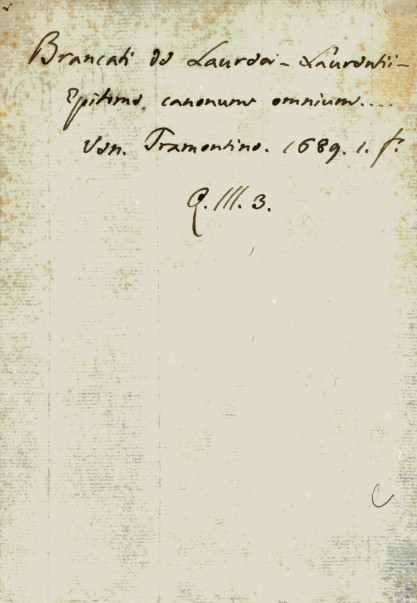 Brancati de Lauraea - Laurentii -
Epitome canonum omnium....
Ven. Tramontino. 1689. 1. f.º
Q. III. 3.
C